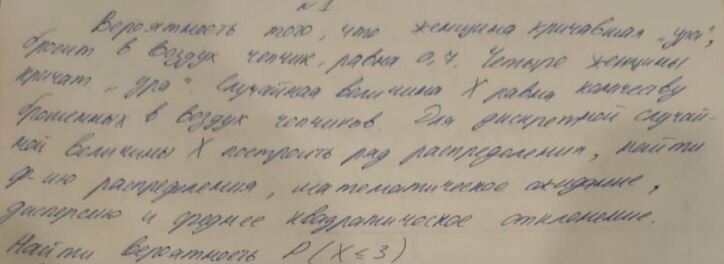 №1
Вероятность того, что женщина кричавшая „ура",
бросит в воздух чепчик, равна 0,7. Четыре женщины
кричат „ура". Случайная величина X равна количеству
брошенных в воздух чепчиков. Для дискретной случай-
ной величины X построить ряд распределения, найти
ф-ию распределения, математическое ожидание,
дисперсию и среднее квадратическое отклонение.
Найти вероятность P(X≤3)